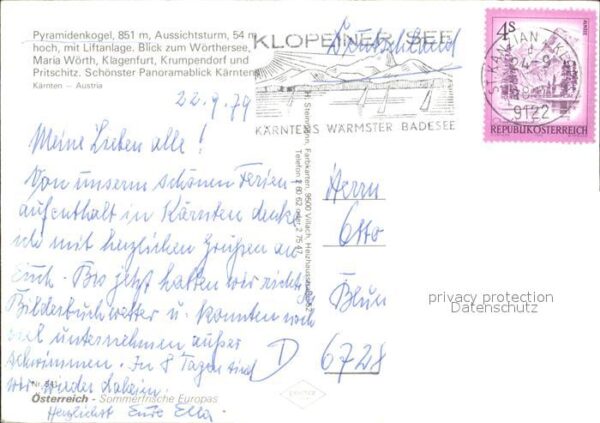 Pyramidenkogel, 851 m, Aussichtsturm, 54 m
hoch, mit Liftanlage. Blick zum Wörthersee,
Maria Wörth, Klagenfurt, Krumpendorf und
Pritschitz. Schönster Panoramablick Kärntens
Kärnten – Austria
22.9.79
Meine Lieben alle!
Von unserm schönen Ferien-
aufenthalt in Kärnten denke
ich mit herzlichen Grüßen an
Euch. Bis jetzt hatten wir richtig
Bilderbuchwetter u. konnten
viel unternehmen außer
schwimmen. In 8 Tagen sind
wir wieder daheim.
Herzlichst Eure Ella.
Nr. 541
Österreich - Sommerfrische Europas
Telefon
9500 Villach
KLOPEINER SEE
KÄRNTENS WÄRMSTER BADESEE
Deutschland
4S
ST. KANZIAN
9122
REPUBLIK ÖSTERREICH
Herrn
Otto
Blum
D 6728
privacy protection
Datenschutz